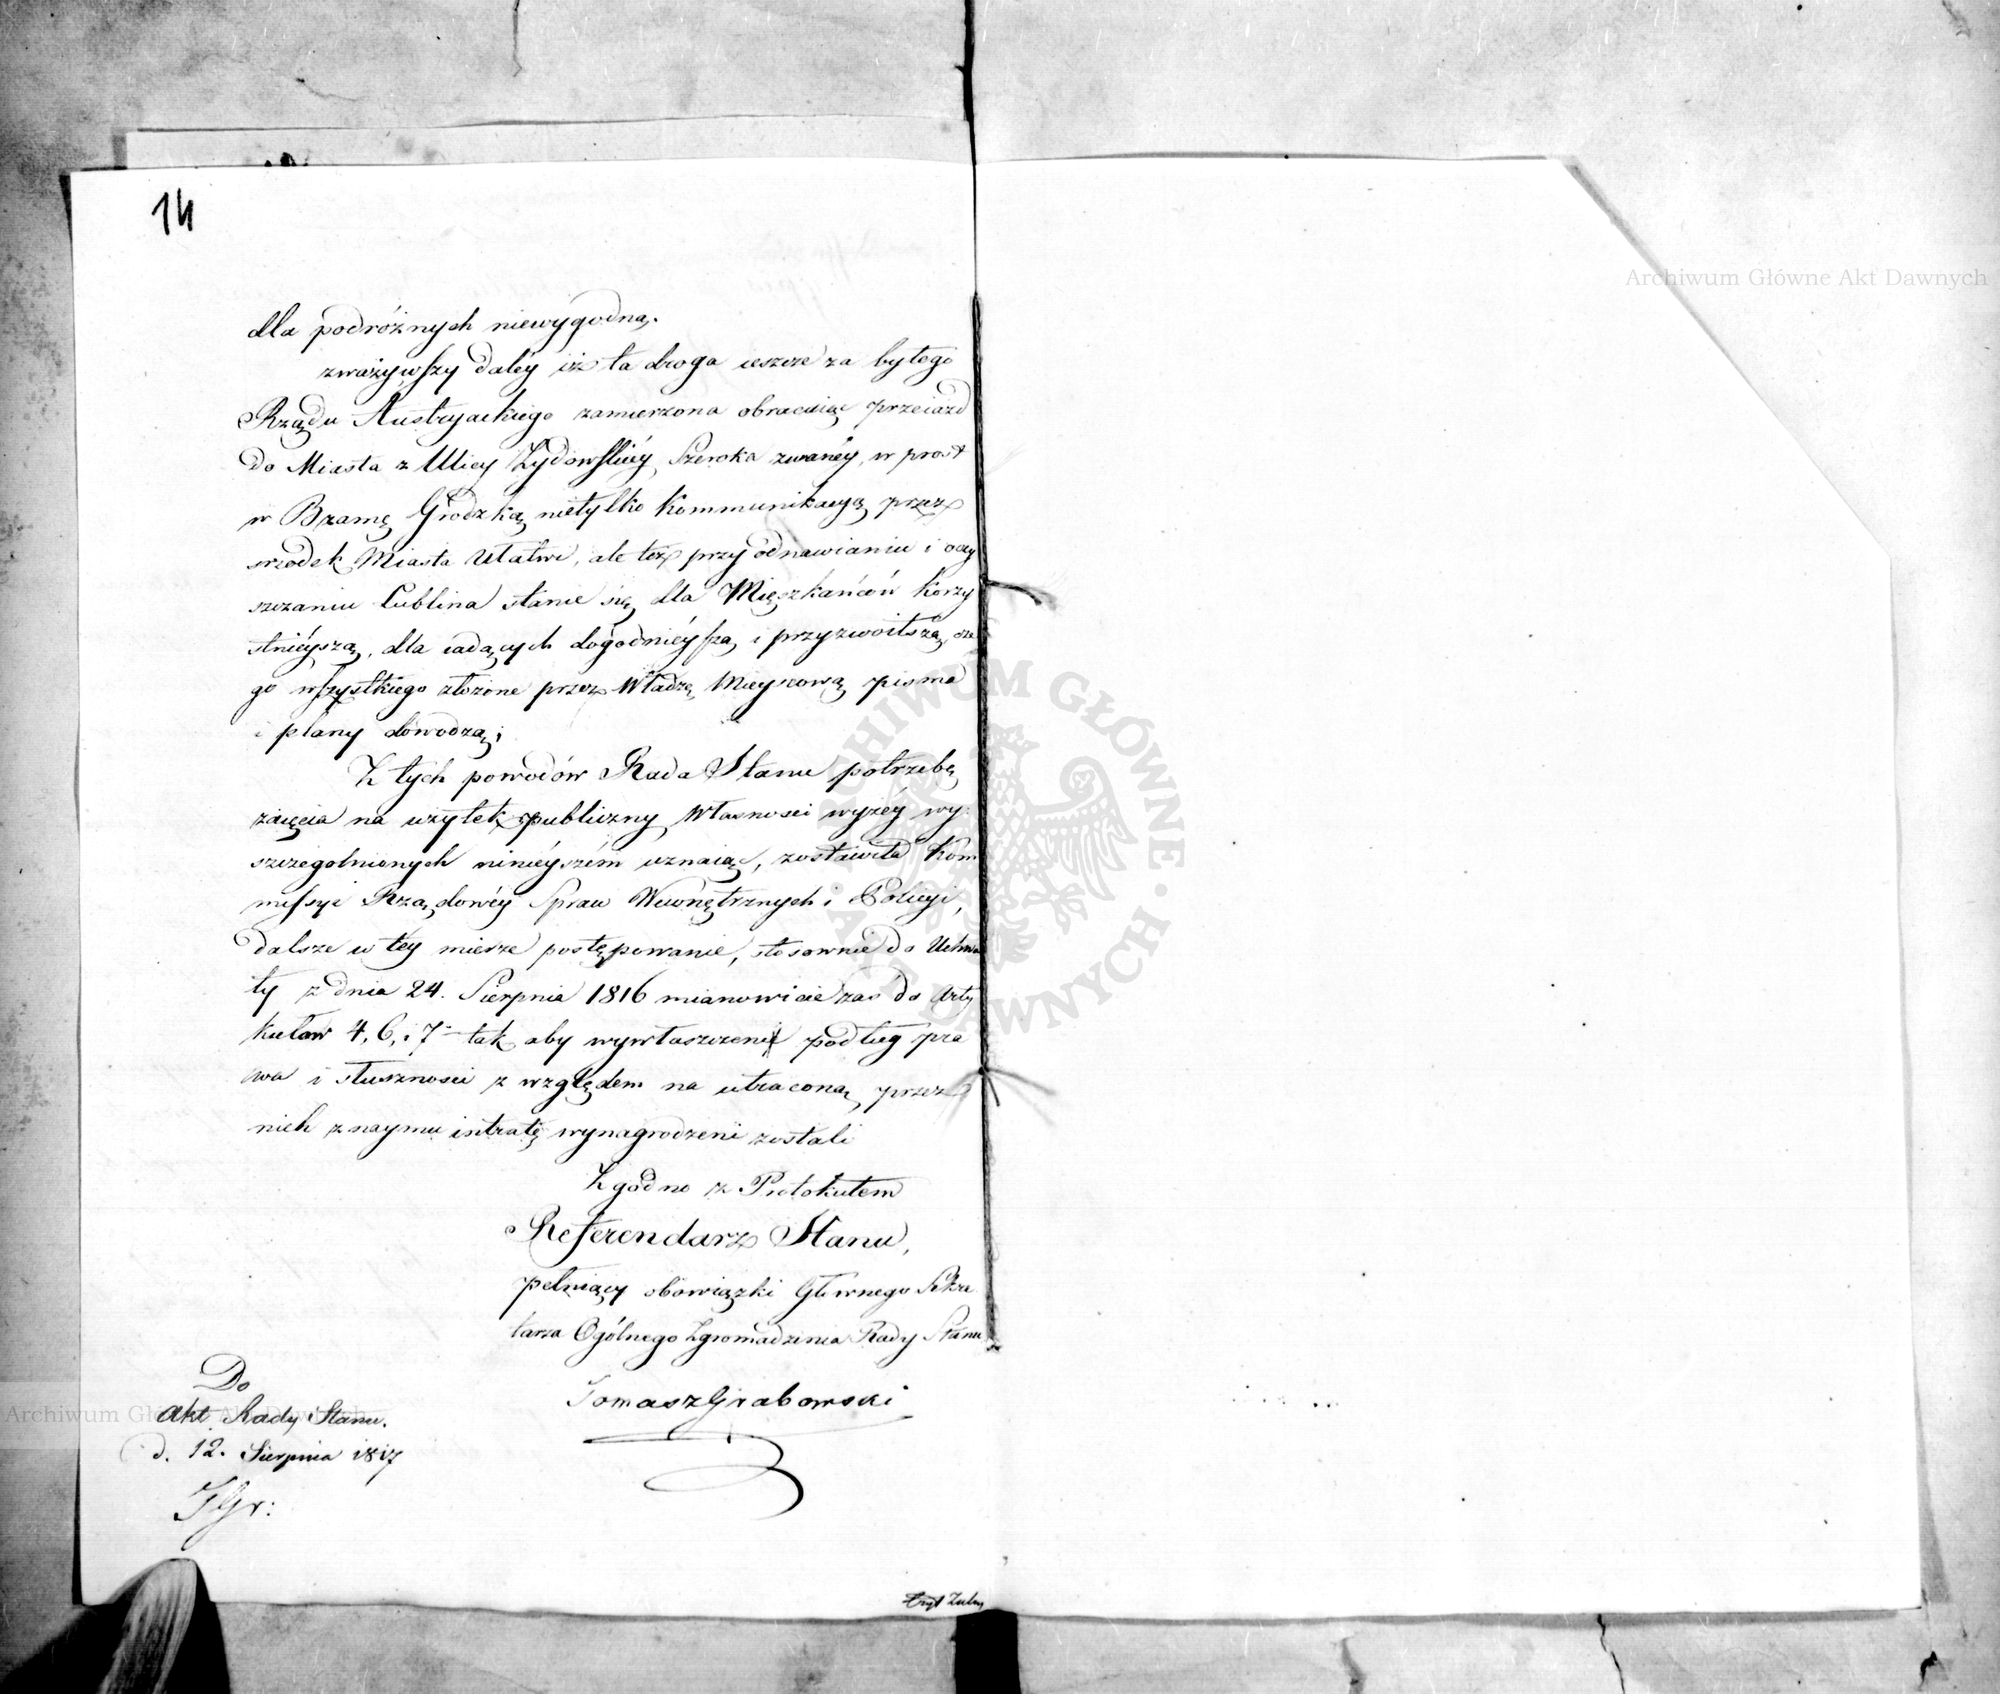 14
dla podróżnych niewygodną.
zważywszy daléy iż ta droga ieszcze za byłego
Rządu Austryackiego zamierzona obracaiąc przeiazd
do Miasta z Ulicy Żydowskiéy Szeroka zwanéy, w prost
w Bramę Grodzką nietylko Kommunikacyą przez
srzodek Miasta ułatwi, ale też przy odnawianiu i oczy
szczaniu Lublina stanie się dla Mięszkańców korzy
stnieyszą, dla iadących dogodnieyszą i przyzwoitszą, cze
go wszystkiego złożone przez Władzę Mieyscową pisma
i plany dowodzą;
Z tych powodów Rada Stanu potrzebę
zaięcia na użytek publiczny Własnosci wyżéy wy
szczegolnionych ninieyszém uznaiąc, zostawiła Kom
missyi Rządowéy Spraw Wewnętrznych i Policyi,
dalsze w téy mierze postępowanie, stosownie do Uchwa
ły z dnia 24. Sierpnia 1816 mianowicie zas do Arty
kułow 4, 6, i 7 tak aby wywłaszczeni podług pra
wa i słusznosci z względem na utraconą przez
nich z naymu intratę wynagrodzeni zostali
Zgodno z Protokułem
Referendarz Stanu,
pełniący obowiązki Głownego Sekre
tarza Ogólnego Zgromadzenia Rady Stanu
Tomasz Grabowski
Do
Akt Rady Stanu.
d. 12. Sierpnia 1817
TGr:
Archiwum Główne Akt Dawnych
Archiwum Główne Akt Dawnych
ARCHIWUM GŁÓWNE AKT DAWNYCH